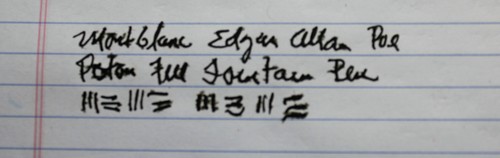 Montblanc Edgar Allan Poe
Piston Fill Fountain Pen